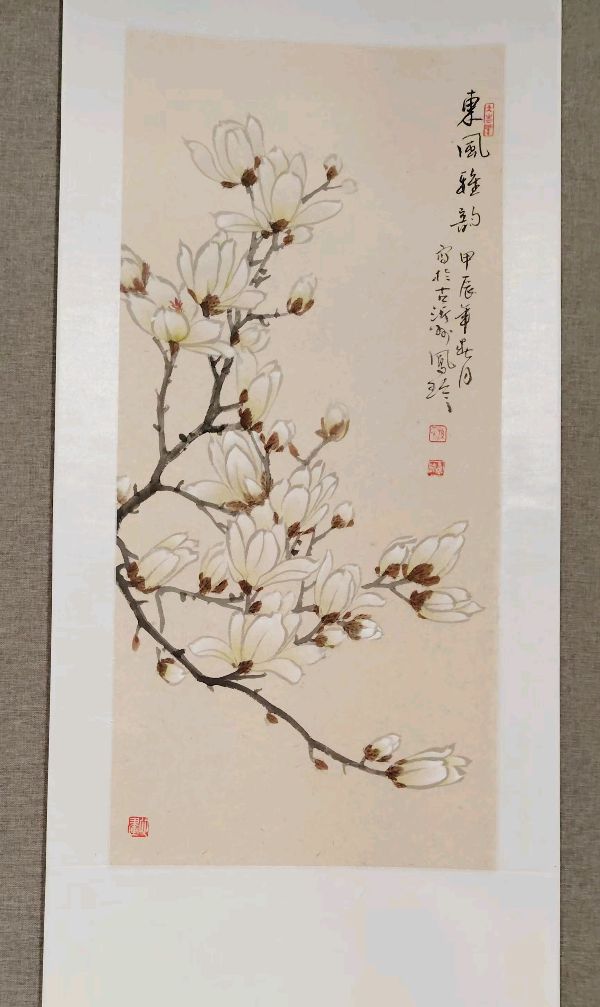 東風雅韵
甲辰年春月
寫於古浙州鳳玲